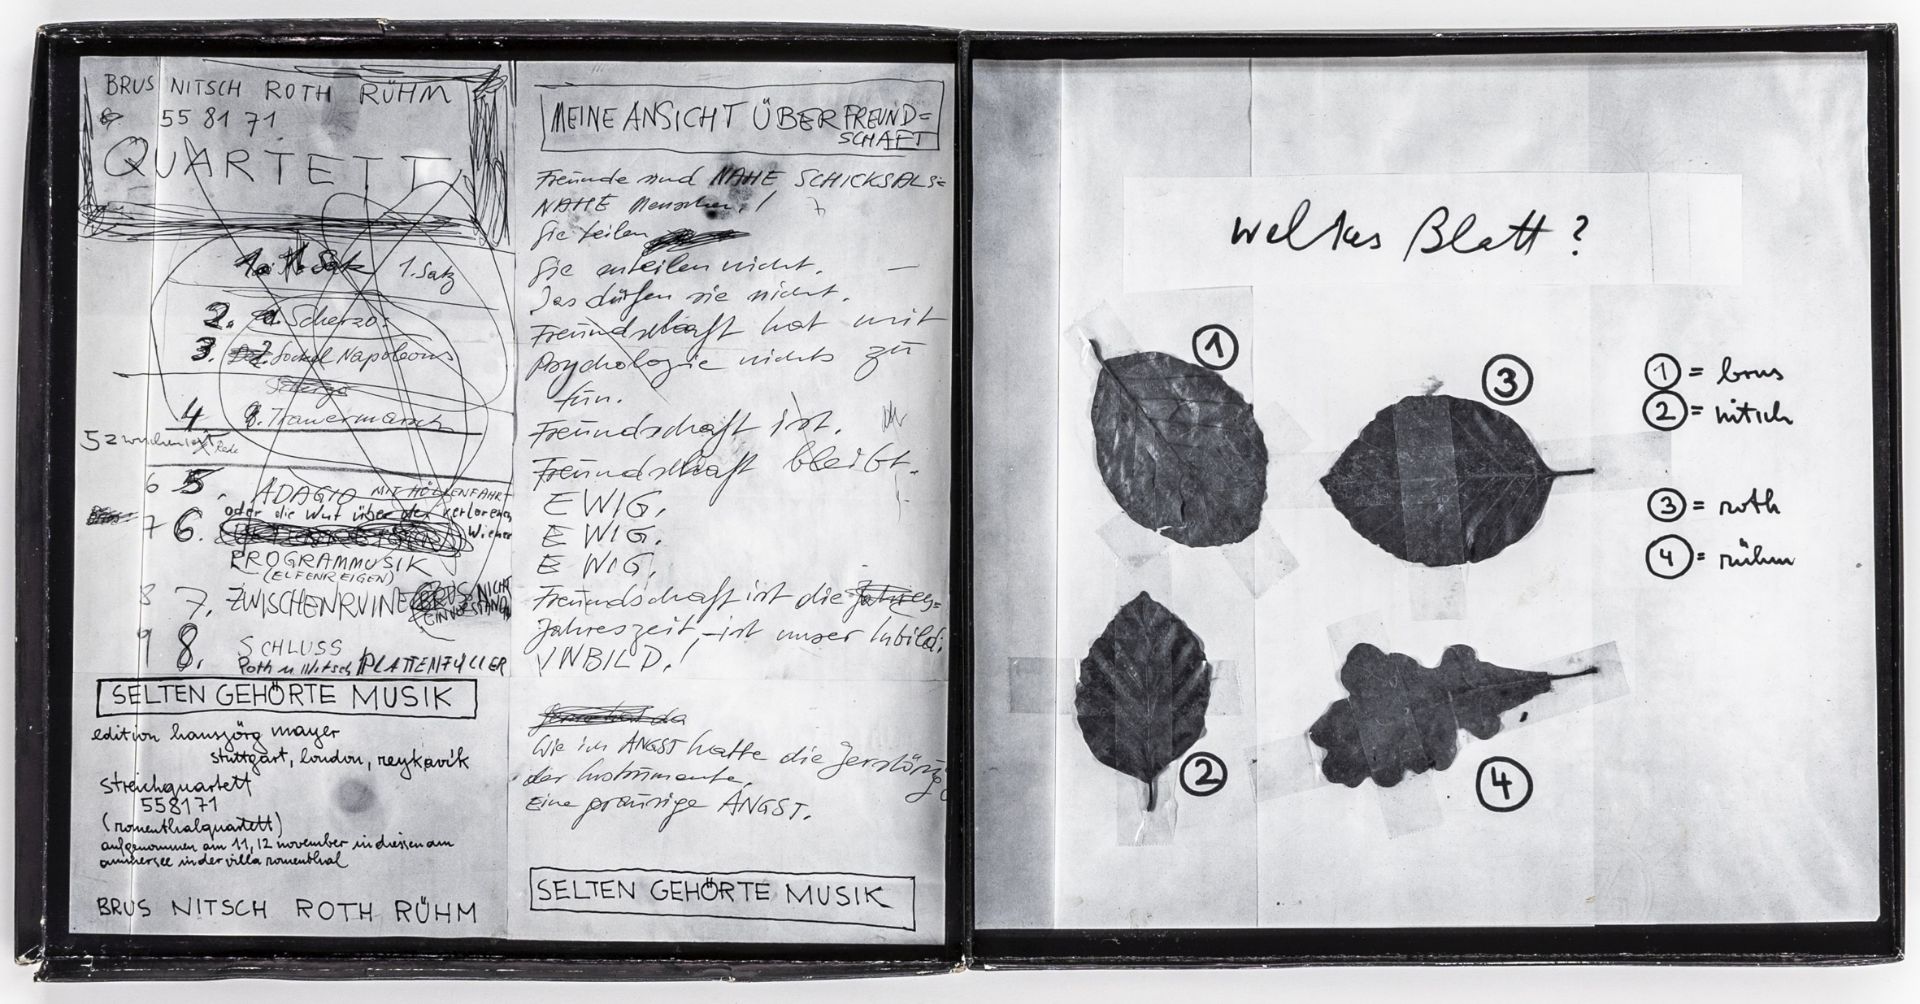 BRUS NITSCH ROTH RÜHM
55 81 71
QUARTETT
1. Satz
2. Scherzo:
3. Sockel Napoleons
4 Trauermarsch
5 zwischen
Rede
6 5. ADAGIO MIT HÖLLENFAHRT
oder die Wut über den verlorenen
7 6. Wiener
PROGRAMMUSIK
(ELFENREIGEN)
8 7. ZWISCHENRUINE BRUS NICHT
EINVERSTANDEN
9 8. SCHLUSS
Roth u Nitsch PLATTENFÜLLER
SELTEN GEHÖRTE MUSIK
edition hansjörg mayer
stuttgart, london, reykjavik
streichquartett
558171
(romenthalquartett)
aufgenommen am 11, 12 november in diessen am
ammersee in der villa romenthal
BRUS NITSCH ROTH RÜHM
MEINE ANSICHT ÜBER FREUND=
SCHAFT
Freunde sind NAHE SCHICKSALS=
NAHE Menschen!
Sie teilen
Sie urteilen nicht.
Das dürfen sie nicht.
Freundschaft hat mit
Psychologie nichts zu
tun.
Freundschaft ist.
Freundschaft bleibt.
EWIG,
EWIG,
EWIG,
Freundschaft ist die
Jahreszeit, ist unser
INBILD!
Wie ich ANGST hatte die Zerstörung
der Instrumente,
Eine grausige ANGST.
SELTEN GEHÖRTE MUSIK
welches Blatt?
1
3
2
4
1 = brus
2 = nitsch
3 = roth
4 = rühm